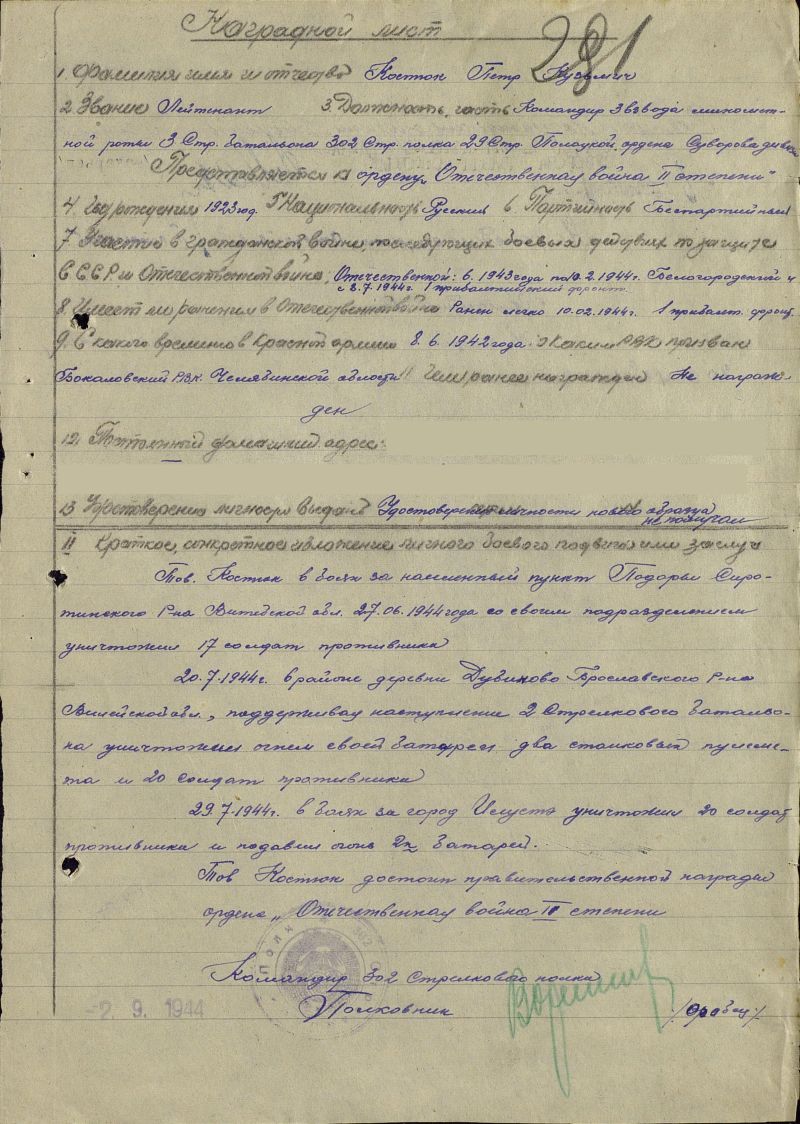 Наградной лист
281
1 Фамилия имя и отчество Костюк Петр Кузьмич
2 Звание Лейтенант 3. Должность, часть Командир взвода миномет-
ной роты 3 Стр. батальона 302 Стр. полка 29 Стр. Полоцкой, ордена Суворова дивизии
Представляется к ордену „Отечественная война II степени"
4. Год рождения 1923 год. 5 Национальность Русский 6 Партийность Беспартийный
7. Участие в гражданской войне, последующих боевых действиях по защите
СССР и Отечественной войне, Отечественной: 6. 1943 года по 10.2.1944г. Белогородский и
с 8.7.1944г. 1 прибалтийский фронт.
8. Имеет ли ранения в Отечественной войне Ранен легко 10.02.1944г. 1 прибалт. фронт.
9. С какого времени в Красной армии 8. 6. 1942 года. 10 Каким РВК призван
Бокаловский РВК. Челябинской области 11 Чем ранее награжден Не награж-
ден
12. Постоянный домашний адрес:
13 Удостоверение личности выдано Удостоверение личности нового образца
не получал
II Краткое, конкретное изложение личного боевого подвига или заслуг
Тов. Костюк в боях за населенный пункт Подорьи Сиро-
тинского Р-на Витебской обл. 27.06.1944 года со своим подразделением
уничтожил 17 солдат противника
20.7.1944г. в районе деревни Дубиново Брославского Р-на
Вилейской обл., поддерживая наступление 2 Стрелкового батальо-
на уничтожил огнем своей батареи два станковых пулеме-
та и 20 солдат противника
29.7.1944г. в боях за город Илустэ уничтожил 20 солдат
противника и подавил огонь 2х батарей.
Тов Костюк достоин правительственной награды
ордена „Отечественная война II степени
Командир 302 Стрелкового полка
Полковник
-2. 9. 1944